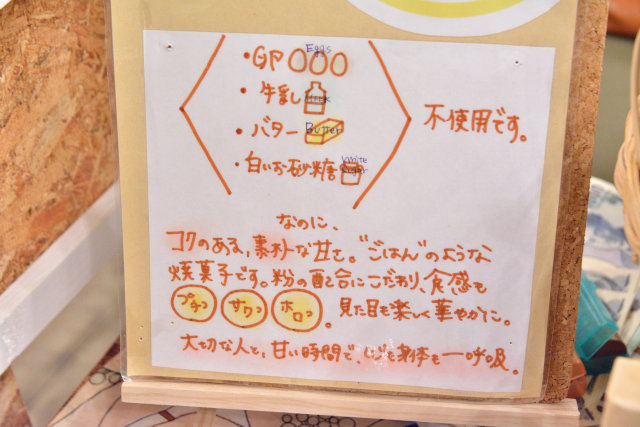 ・卵 Eggs
・牛乳 Milk
・バター Butter
・白いお砂糖 White Sugar
不使用です。
なのに、
コクのある、素朴な甘さ。“ごはん”のような
焼菓子です。粉の配合にこだわり、食感も
プチッ サクッ ホロッ 。見た目も楽しく華やかに。
大切な人と、甘い時間で、心も身体も一呼吸。